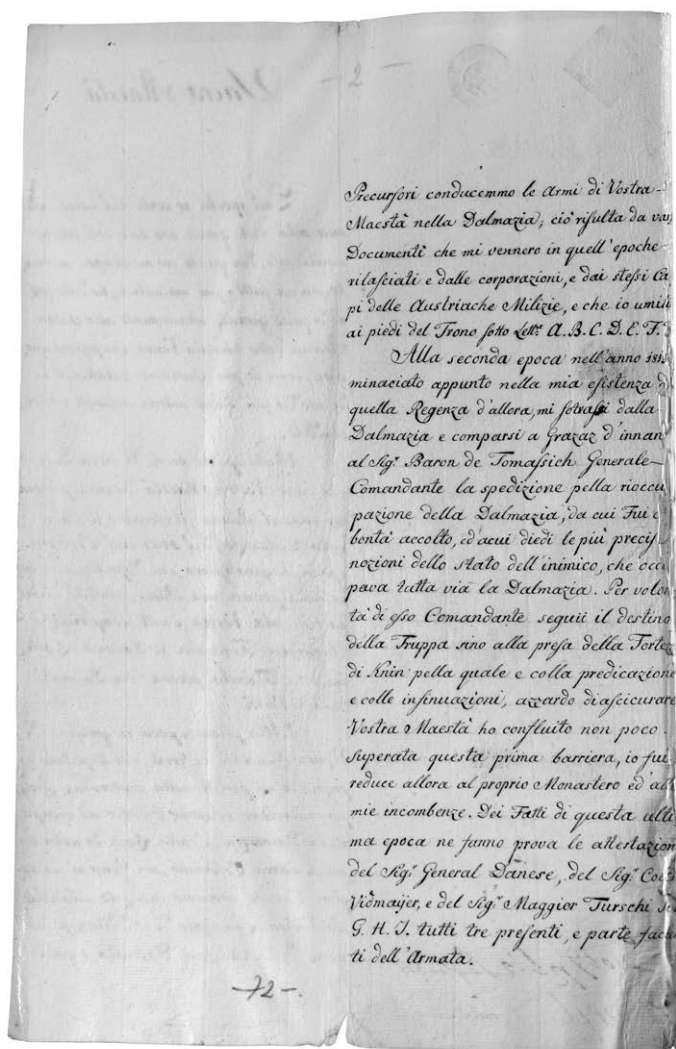 - 2 -
Precursori conducemmo le Armi di Vostra
Maestà nella Dalmazia; ciò risulta da
Documenti che mi vennero in quell'epoche
rilasciati e dalle corporazioni, e dai stessi Ca
pi delle Austriache Milizie, e che io
ai piedi del Trono sotto Lett.e A. B. C. D. E. F.
Alla seconda epoca nell'anno
minaciato appunto nella mia esistenza
quella Regenza d'allora, mi sotrassi dalla
Dalmazia e comparsi a Grazaz d'innan
al Sig.r Baron de Tomassich Generale
Comandante la spedizione pella rioccu
pazione della Dalmazia, da cui Fui
bontà accolto, ed a cui diedi le più
nozioni dello stato dell'inimico, che
pava tutta via la Dalmazia. Per
tà di esso Comandante seguii il destino
della Truppa sino alla presa della
di Knin pella quale e colla predicazione
e colle insinuazioni, azzardo di ascicurare
Vostra Maestà ho confluito non poco.
Superata questa prima barriera, io fui
reduce allora al proprio Monastero ed
mie incombenze. Dei Fatti di questa ulti
ma epoca ne fanno prova le
del Sig.r General Danese, del Sig.r
Vidmaijer, e del Sig.r Maggior Turschi
G. H. I. tutti tre presenti, e parte
ti dell'Armata.
-72-.